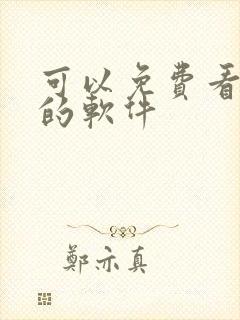 可以免費看
的軟件
鄭亦真